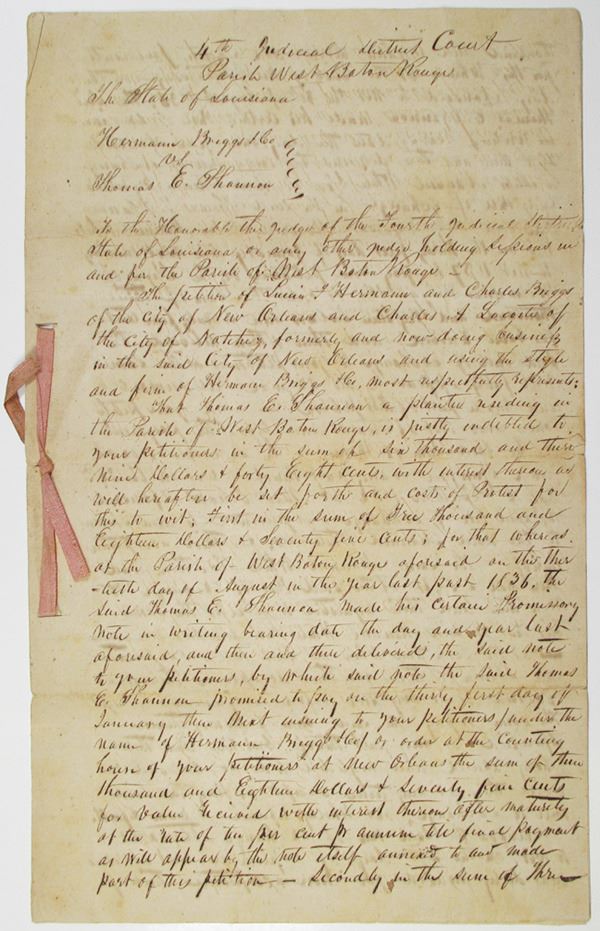 4th Judicial District Court
Parish West Baton Rouge
The State of Louisiana
Hermann Briggs & Co
vs
Thomas E. Shannon
To the Honorable the Judge of the Fourth Judicial District
State of Louisiana or any other judge holding sessions in
and for the Parish of West Baton Rouge –
The petition of Lucien J Hermann and Charles Briggs
of the City of New Orleans and Charles A Lacoste of
the City of Natchez, formerly and now doing business
in the said City of New Orleans and using the style
and firm of Hermann Briggs & Co, most respectfully represents;
That Thomas E. Shannon a planter residing in
the Parish of West Baton Rouge, is justly indebted to
your petitioners in the sum of six thousand and thirty
Nine Dollars & forty Eight cents, with interest thereon as
will hereafter be set forth and costs of Protest for
this to wit; First in the sum of Three Thousand and
Eighteen Dollars & Seventy five cents; for that whereas
at the Parish of West Baton Rouge aforesaid on the thir
-tieth day of August in the Year last past 1836. the
said Thomas E. Shannon made his certain Promissory
Note in writing bearing date the day and year last
aforesaid, and then and there delivered, the said note
to your petitioners, by which said note the said Thomas
E. Shannon promised to pay on the thirty first day of
January then Next ensuing to your petitioners (under the
name of Hermann Briggs & Co) or order at the Counting
house of your Petitioners at New Orleans the sum of three
thousand and Eighteen Dollars & Seventy five cents
for Value Received with interest thereon after maturity
at the rate of ten per cent pr annum till final payment
as will appear by the note itself annexed to and made
part of this petition – Secondly in the sum of Three